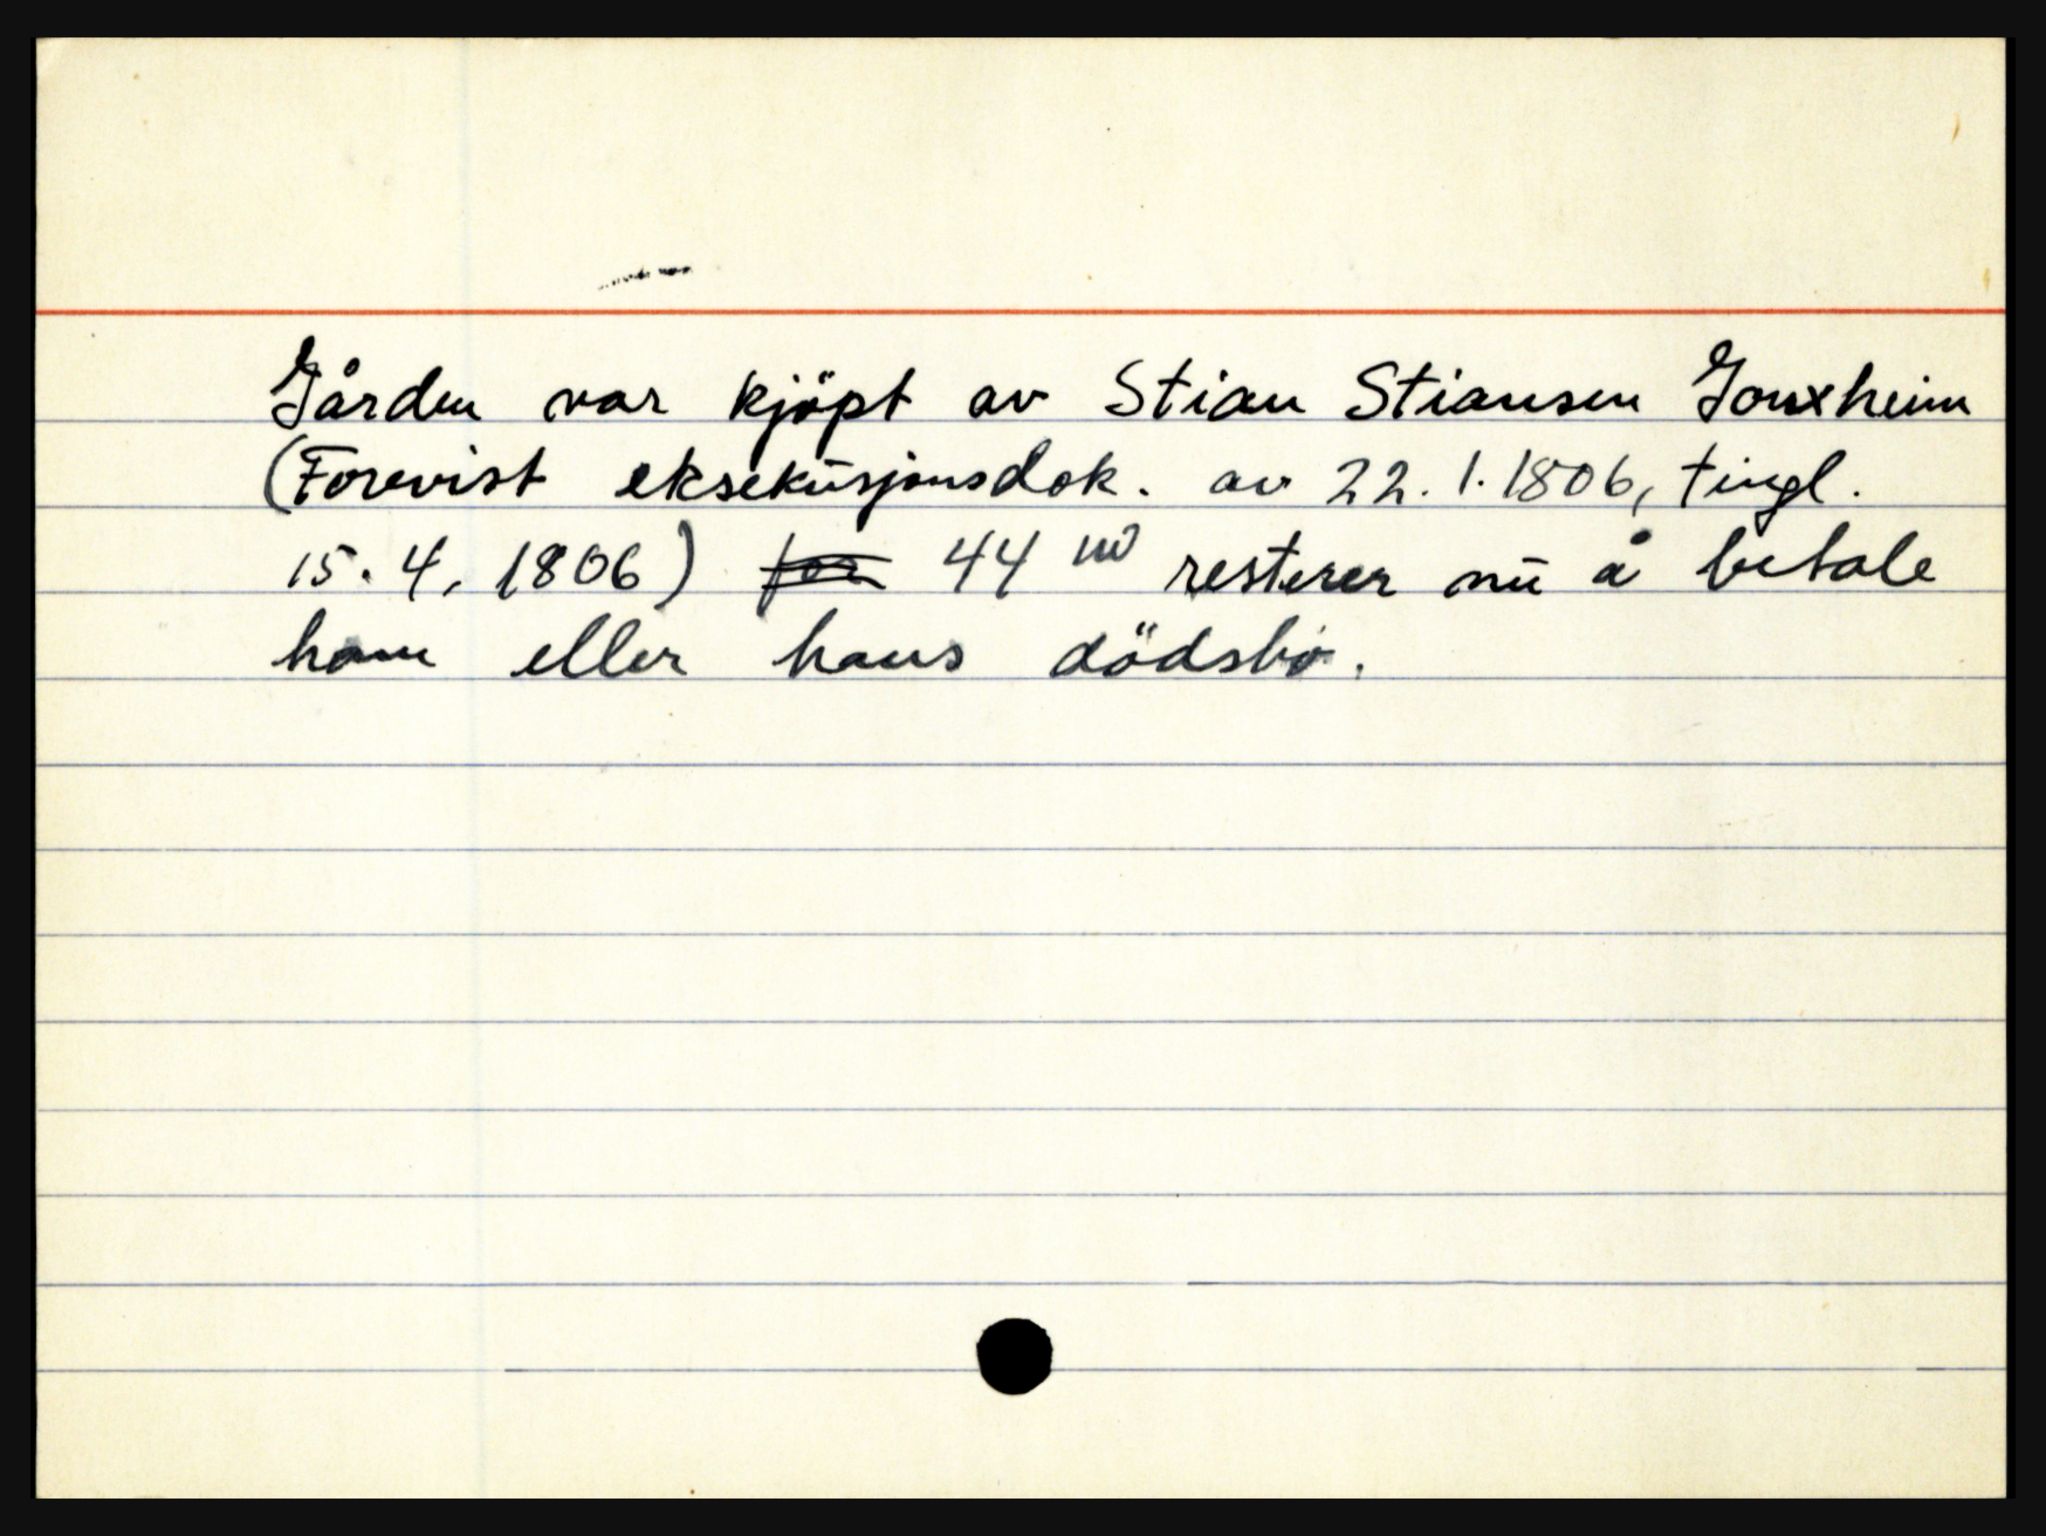 Gården var kjöpt av Stian Stiansen Gonxheim
(Forevist eksekusjonsdok. av 22.1.1806, tingl.
15.4.1806) for 44 resterer nu å betale
ham eller hans dödsbo.